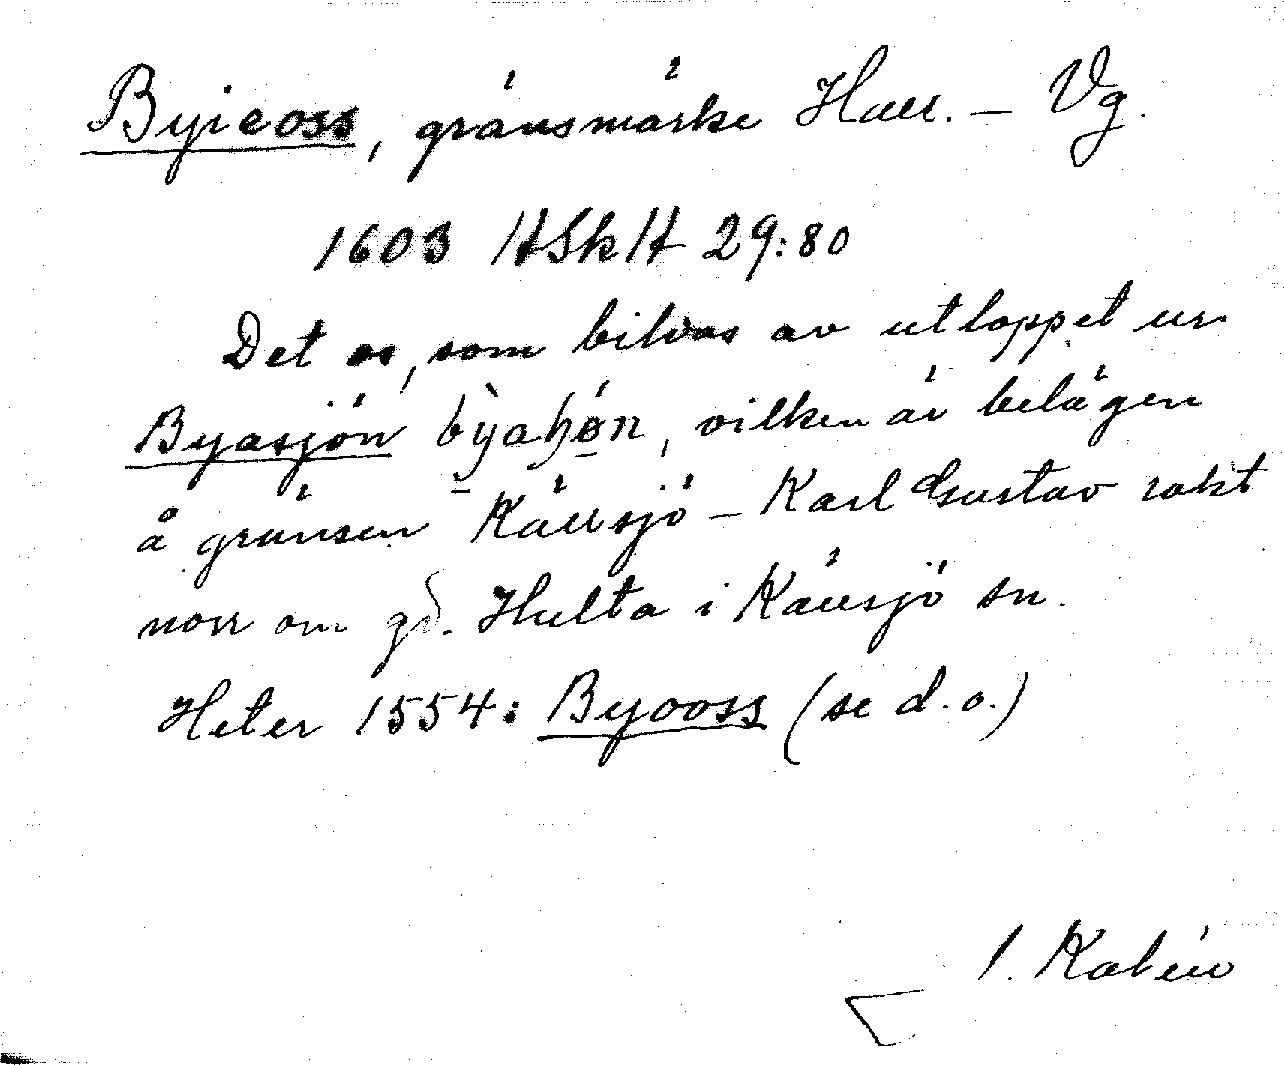 Byieoss, gränsmärke Hall. – Vg.
1603 HSkH 29:80
Det os, som bildas av utloppet ur
Byasjön, vilken är belägen
å gränsen Källsjö – Karl Gustav rakt
norr om gd. Hulta i Källsjö sn.
Heter 1554: Byooss (se d.o.)
I. Kalén